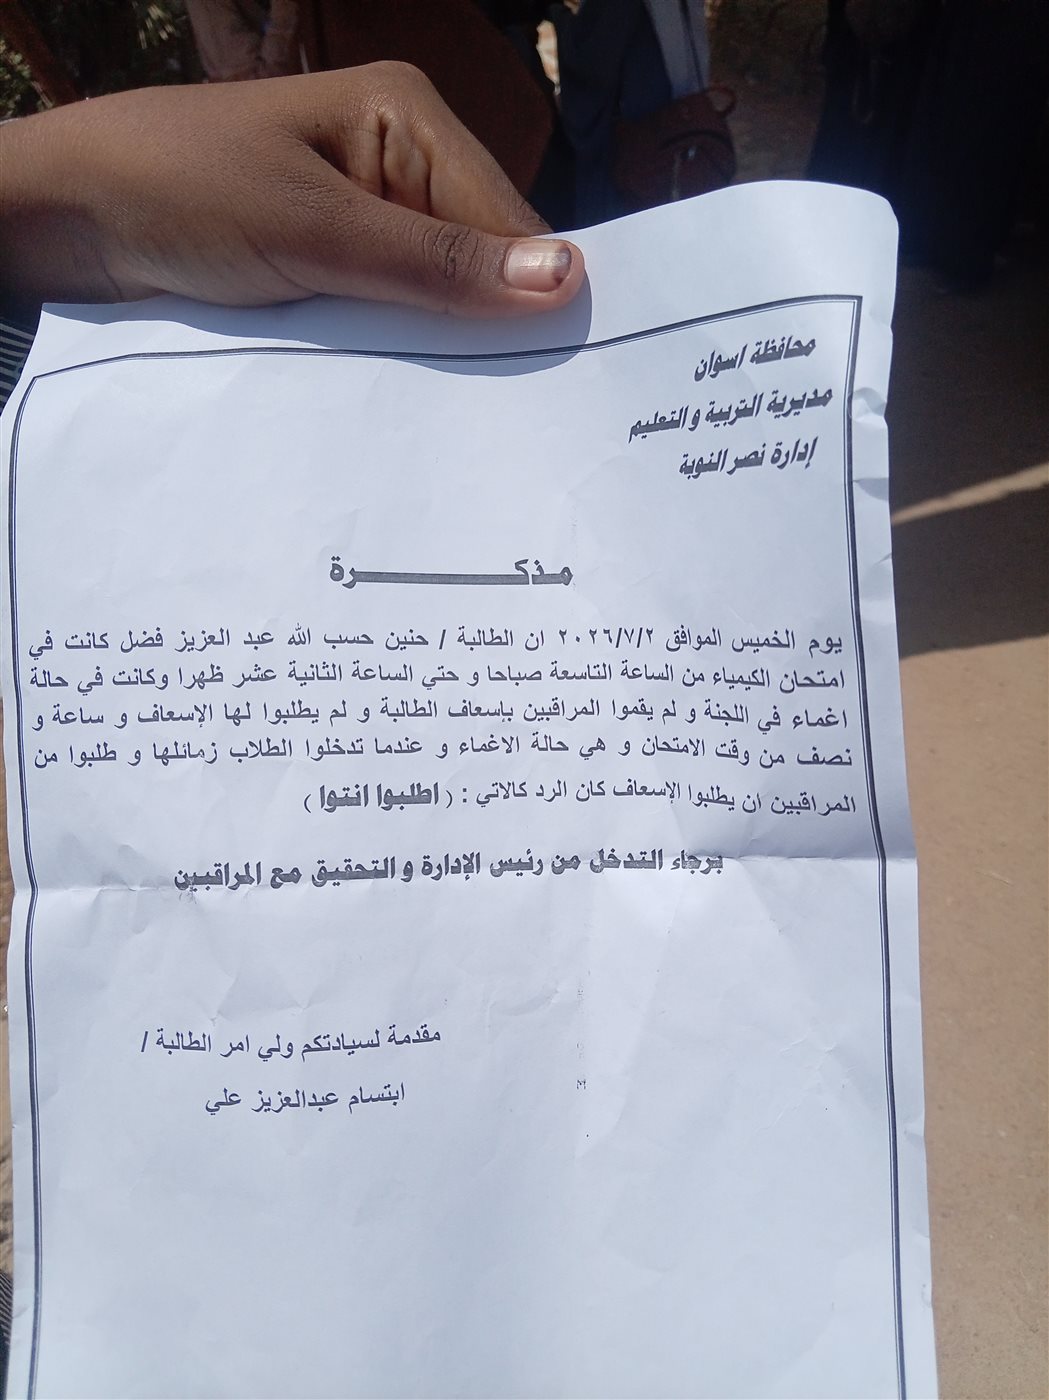 محافظة اسوان
مديرية التربية والتعليم
إدارة نصر النوبة
مذكرة
يوم الخميس الموافق ٢٠٢٦/٧/٢ ان الطالبة / حنين حسب الله عبد العزيز فضل كانت في
امتحان الكيمياء من الساعة التاسعة صباحا و حتي الساعة الثانية عشر ظهرا وكانت في حالة
اغماء في اللجنة و لم يقموا المراقبين بإسعاف الطالبة و لم يطلبوا لها الإسعاف و ساعة و
نصف من وقت الامتحان و هي حالة الاغماء و عندما تدخلوا الطلاب زمائلها و طلبوا من
المراقبين ان يطلبوا الإسعاف كان الرد كالاتي : ( اطلبوا انتوا )
برجاء التدخل من رئيس الإدارة و التحقيق مع المراقبين
مقدمة لسيادتكم ولي امر الطالبة /
ابتسام عبدالعزيز علي